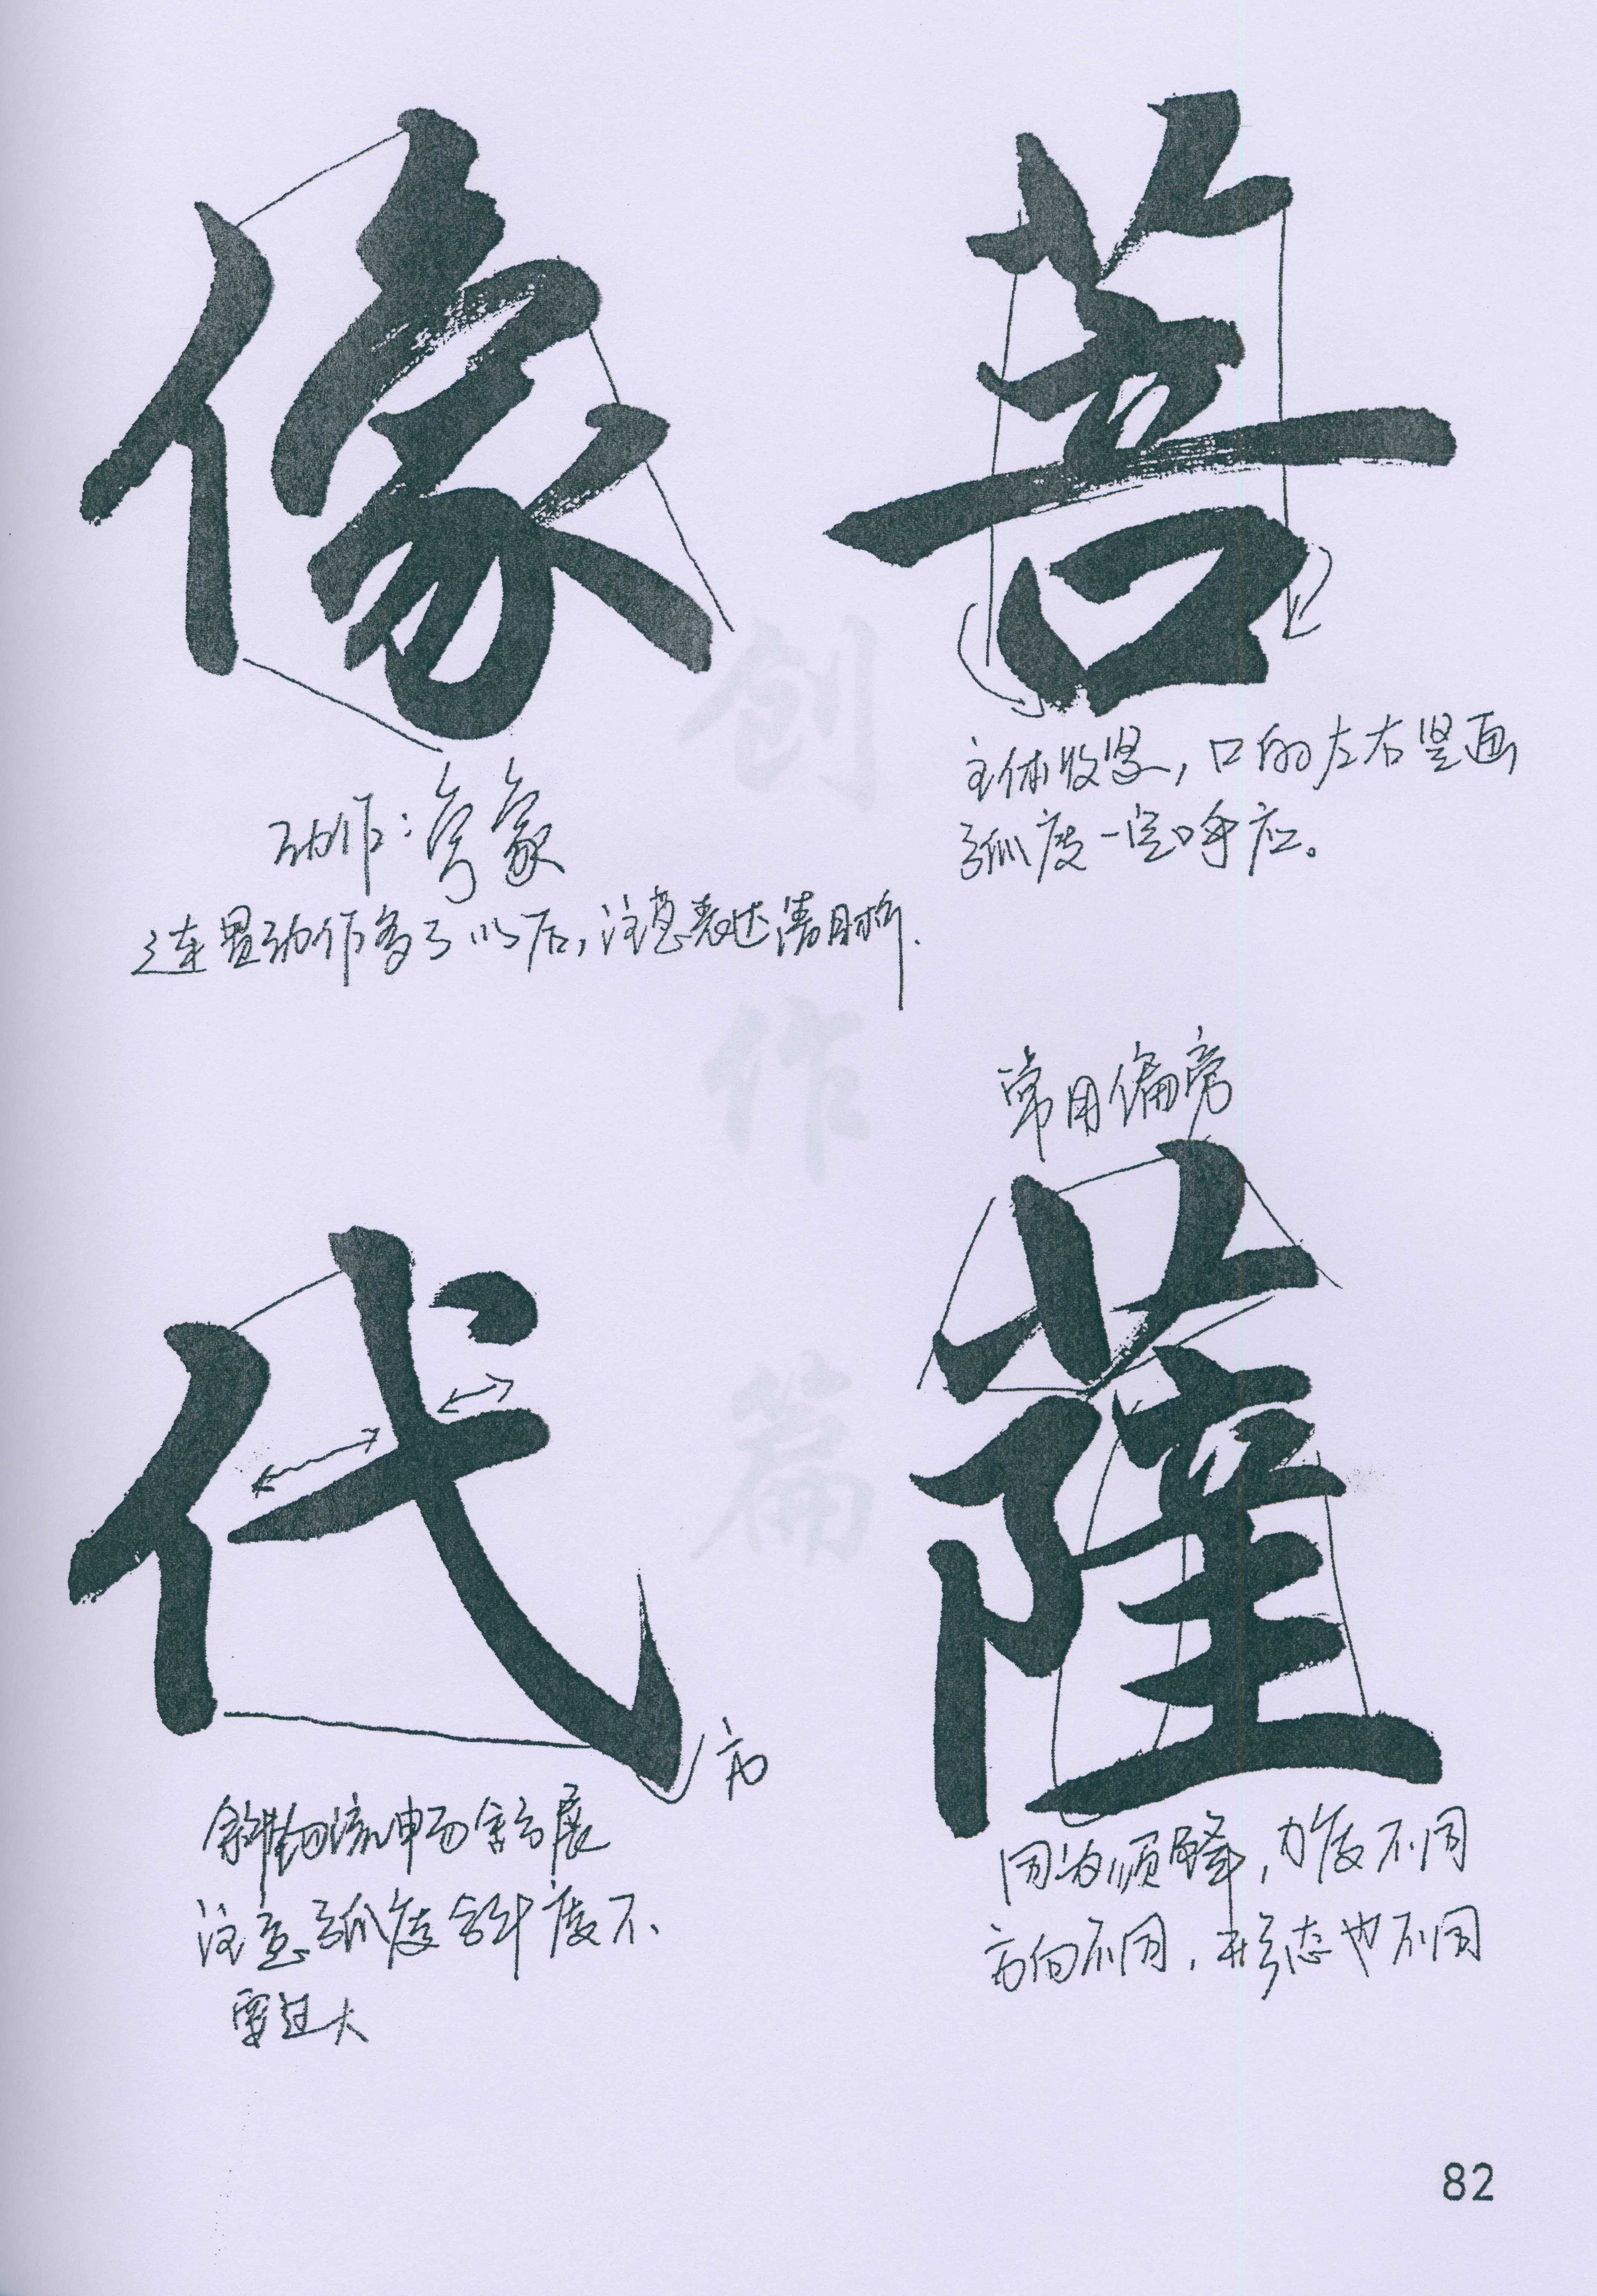 菩
主体收紧，口的左右竖画
弧度一定呼应。
常用偏旁
薩
因为顺锋，力度不同
方向不同，形态也不同
像
动作：
连叠动作多了以后，注意表达清晰．
代
方
斜勾流畅舒展
注意弧度斜度不
要过大
创作篇
82